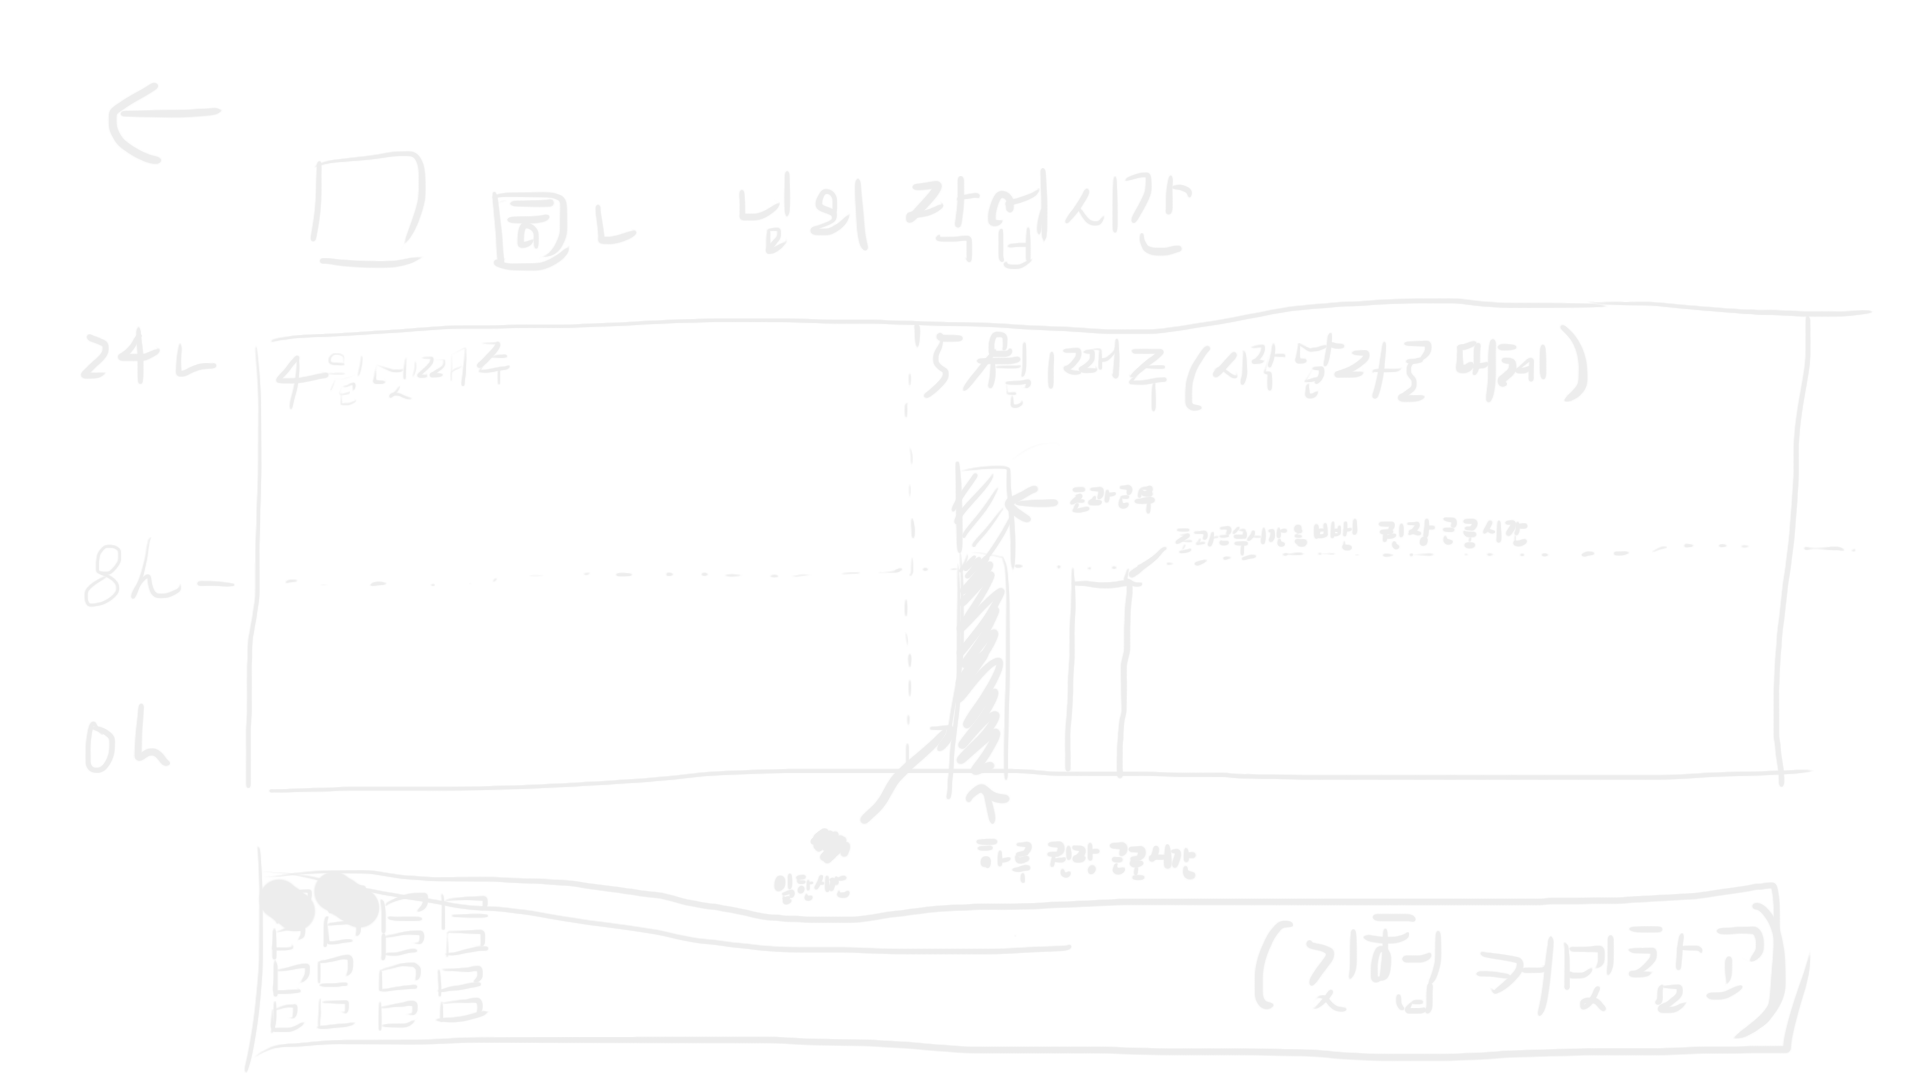 님의 작업시간
24h
4월 넷째 주
5월 1째 주 (시작 날짜로 대체)
초과근무
초과근무시간을 비뺀 권장 근로시간
8h
0h
하루 권장 근로시간
(깃헙 커밋 참고)